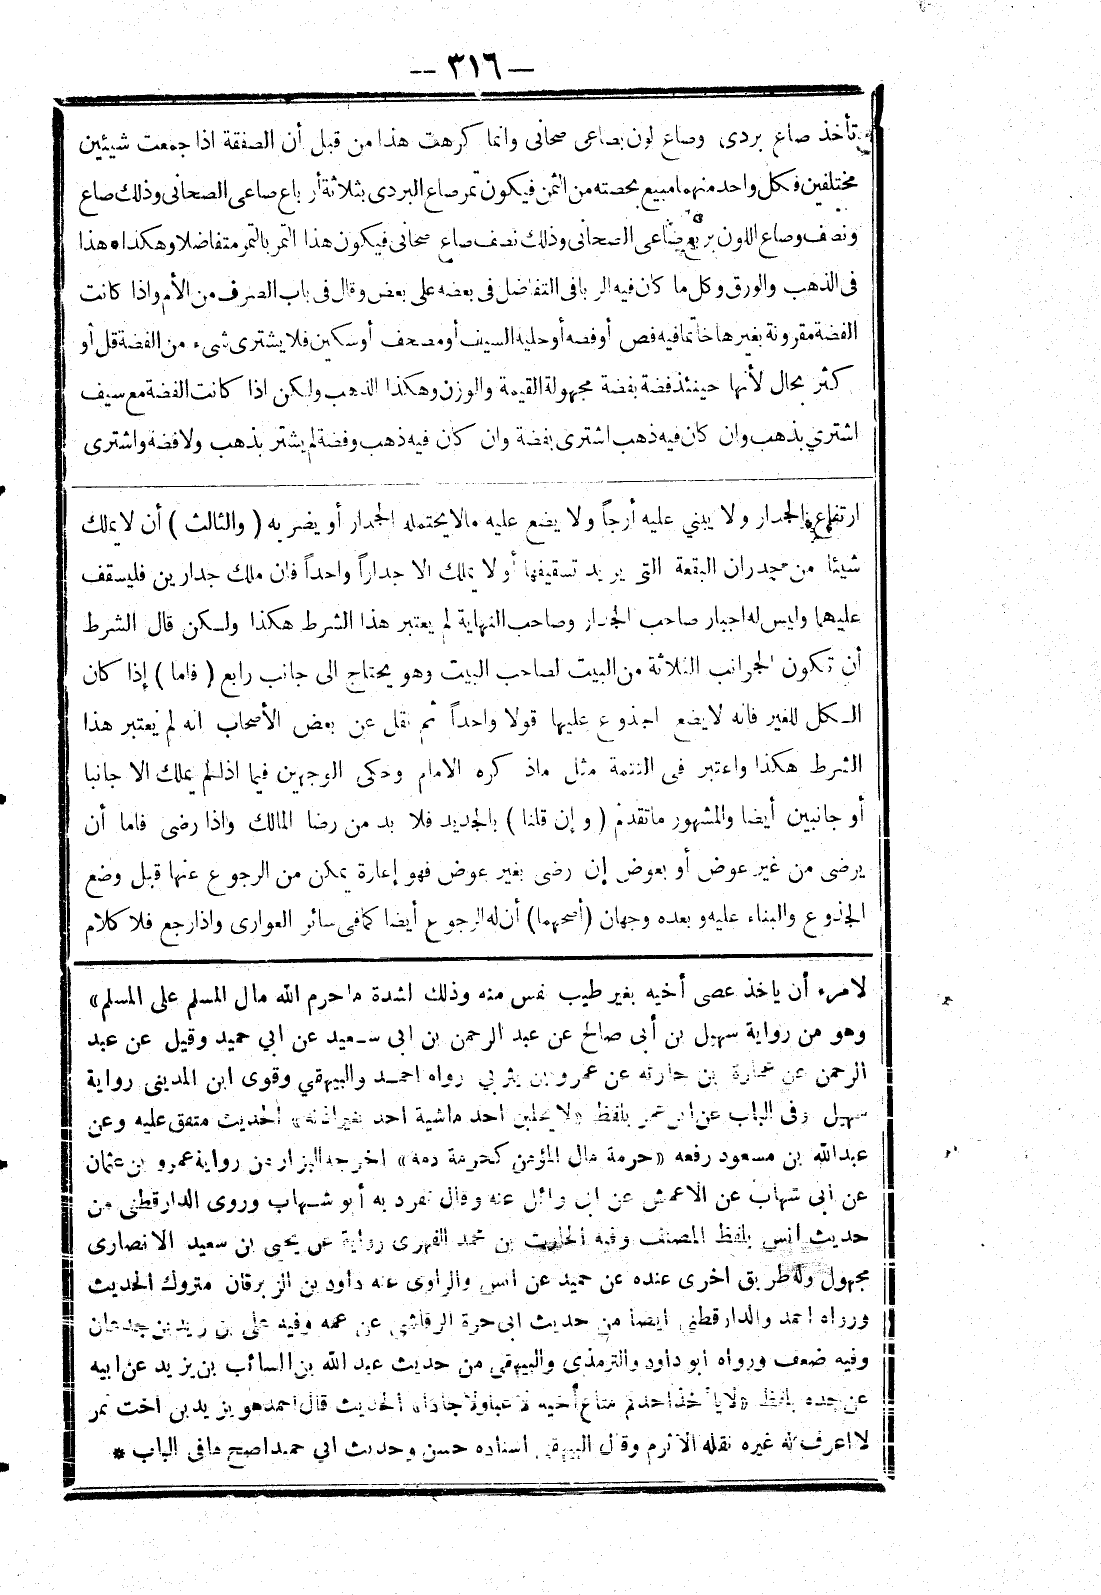 — ٣١٦ —
تأخذ صاع بردى وصاع لون بصاعى صحانى وانما كرهت هذا من قبل أن الصفقة اذا جمعت شيئين
مختلفين فكل واحد منهما مبيع بحصته من الثمن فيكون تمر صاع البردى بثلاثة أرباع صاعى الصحانى وذلك صاع
ونصف وصاع اللون بربع صاعى الصحانى وذلك نصف صاع صحانى فيكون هذا التمر بالتمر متفاضلا وهكذا هذا
فى الذهب والورق وكل ما كان فيه الربا فى التفاضل فى بعضه على بعض وقال فى باب الصرف من الأم واذا كانت
الفضة مقرونة بغيرها خاتما فيه فص أو فضه أو حلية السيف أو مصحف أو سكين فلا يشترى شىء من الفضة قل أو
كثر بحال لأنها حينئذ فضة بفضة مجهولة القيمة والوزن وهكذا الذهب ولكن اذا كانت الفضة مع سيف
اشتري بذهب وان كان فيه ذهب اشترى بفضة وان كان فيه ذهب وفضة لم يشتر بذهب ولا فضة واشترى
ارتفاع الجدار ولا يبني عليه أرجاً ولا يضع عليه مالا يحتمله الجدار أو يضر به ( والثالث ) أن لا يملك
شيئا من جدران البقعة التى يريد تسقيفها أو لا يملك الا جداراً واحداً فان ملك جدارين فليسقف
عليهما وليس له اجبار صاحب الجدار وصاحب النهاية لم يعتبر هذا الشرط هكذا ولكن قال الشرط
أن تكون الجوانب الثلاثة من البيت لصاحب البيت وهو يحتاج الى جانب رابع ( فاما ) إذا كان
الكل للغير فانه لا يضع اجذوع عليها قولا واحداً ثم نقل عن بعض الأصحاب انه لم يعتبر هذا
الشرط هكذا واعتبر فى التتمة مثل ماذ كره الامام وحكى الوجهين فيما اذا لم يملك الا جانبا
أو جانبين أيضا والمشهور ماتقدم ( و إن قلنا ) بالجديد فلا بد من رضا المالك واذا رضى فاما أن
يرضى من غير عوض أو بعوض إن رضى بغير عوض فهو إعارة يمكن من الرجوع عنها قبل وضع
الجذوع والبناء عليه و بعده وجهان (أصحهما) أن له الرجوع أيضا كما فى سائر العوارى واذا رجع فلا كلام
لامرء أن ياخذ عصى أخيه بغير طيب نفس منه وذلك اشدة ما حرم الله مال المسلم على المسلم»
وهو من رواية سهيل بن أبى صالح عن عبد الرحمن بن ابى سعيد عن ابي حميد وقيل عن عبد
الرحمن عن عمارة بن حارثه عن عمرو بن يثربي رواه احمد والبيهقي وقوى ابن المدينى رواية
سهيل وفى الباب عن ابن عمر بلفظ «لا يحلبن احد ماشية احد بغير اذنه» الحديث متفق عليه وعن
عبدالله بن مسعود رفعه «حرمة مال المؤمن كحرمة دمه» اخرجه البزار من رواية عمرو بن عثمان
عن ابى شهاب عن الاعمش عن ابى وائل عنه وقال تفرد به أبو شهاب وروى الدارقطنى من
حديث انس بلفظ المصنف وفيه الحارث بن محمد الفهرى رواية عن يحيى بن سعيد الانصارى
مجهول وله طريق اخرى عنده عن حميد عن انس والراوى عنه داود بن الزبرقان متروك الحديث
ورواه احمد والدارقطنى ايضا من حديث ابى حرة الرقاشى عن عمه وفيه على بن زيد بن جدعان
وفيه ضعف ورواه ابو داود والترمذى والبيهقى من حديث عبد الله بن السائب بن يزيد عن ابيه
عن جده بلفظ «لا يأخذ احدكم متاع أخيه لاعبا ولا جادا» الحديث قال احمد هو يزيد بن اخت نمر
لا اعرف له غيره نقله الاثرم وقال البيهقي اسناده حسن وحديث ابي حميد اصح مافى الباب *